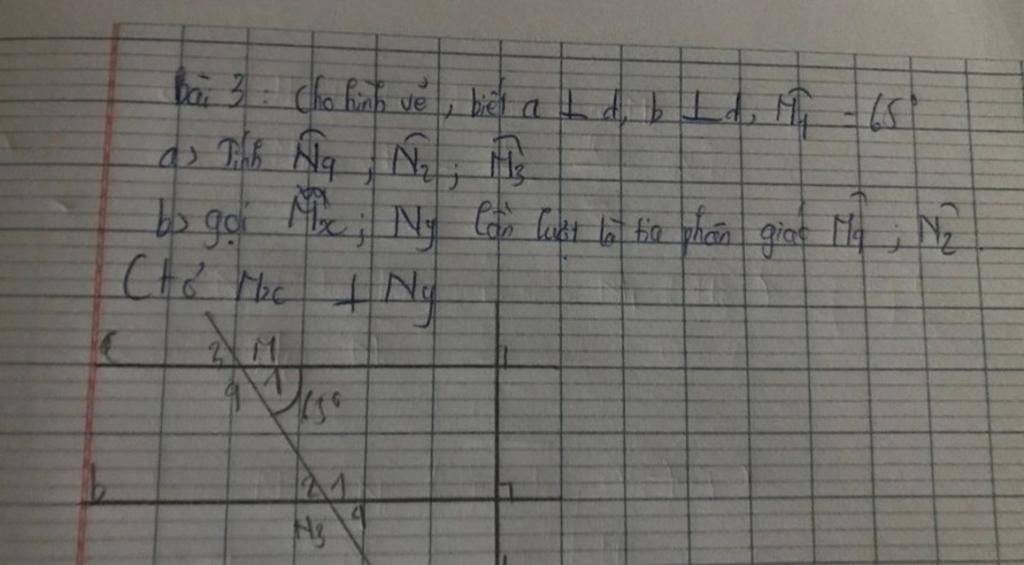 bài 3: Cho hình vẽ, biết a ⊥ d, b ⊥ d, M̂1 = 65°
a, Tính N̂4, N̂2; M̂3
b, gọi Mx; Ny lần lượt là tia phân giác M̂4; N̂2.
C/tỏ Mx ⊥ Ny
a 3 M
4 1 65°
b 2 1
N3 4